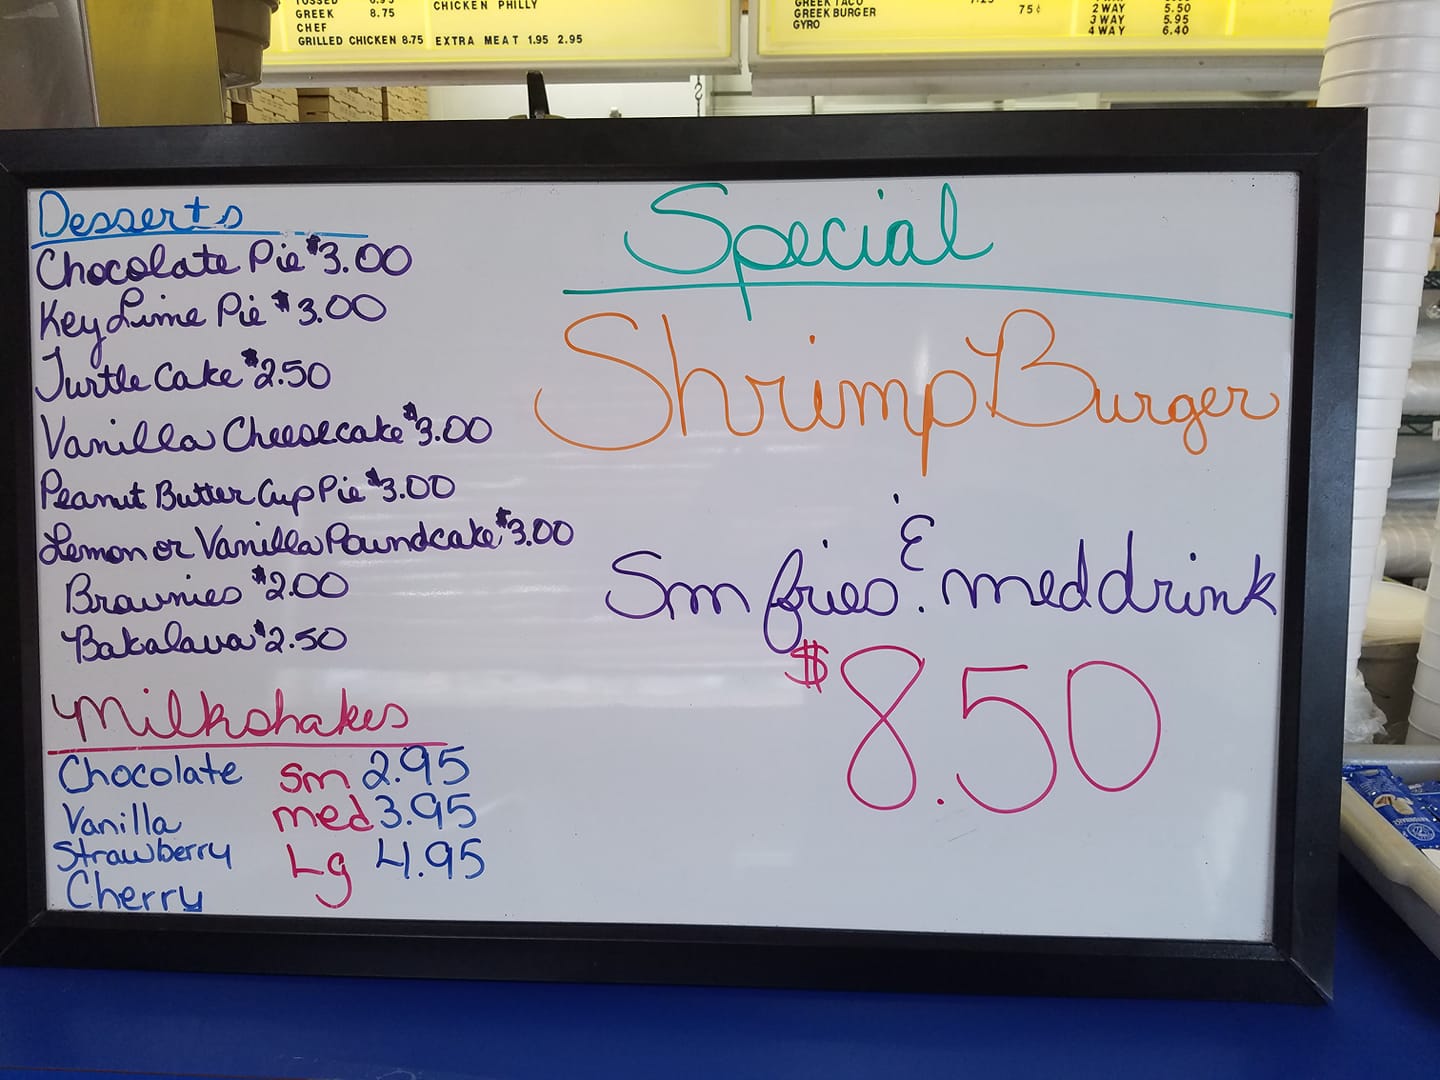 GREEK 8.75
CHEF
GRILLED CHICKEN 8.75
CHICKEN PHILLY
EXTRA MEAT 1.95 2.95
GREEK TACO
GREEK BURGER
GYRO
75¢
2 WAY 5.50
3 WAY 5.95
4 WAY 6.40
Desserts
Chocolate Pie $3.00
Key Lime Pie $3.00
Turtle Cake $2.50
Vanilla Cheesecake $3.00
Peanut Butter Cup Pie $3.00
Lemon or Vanilla Poundcake $3.00
Brownies $2.00
Bakalava $2.50
Milkshakes
Chocolate sm 2.95
Vanilla med 3.95
Strawberry Lg 4.95
Cherry
Special
Shrimp Burger
Sm fries & med drink
$8.50